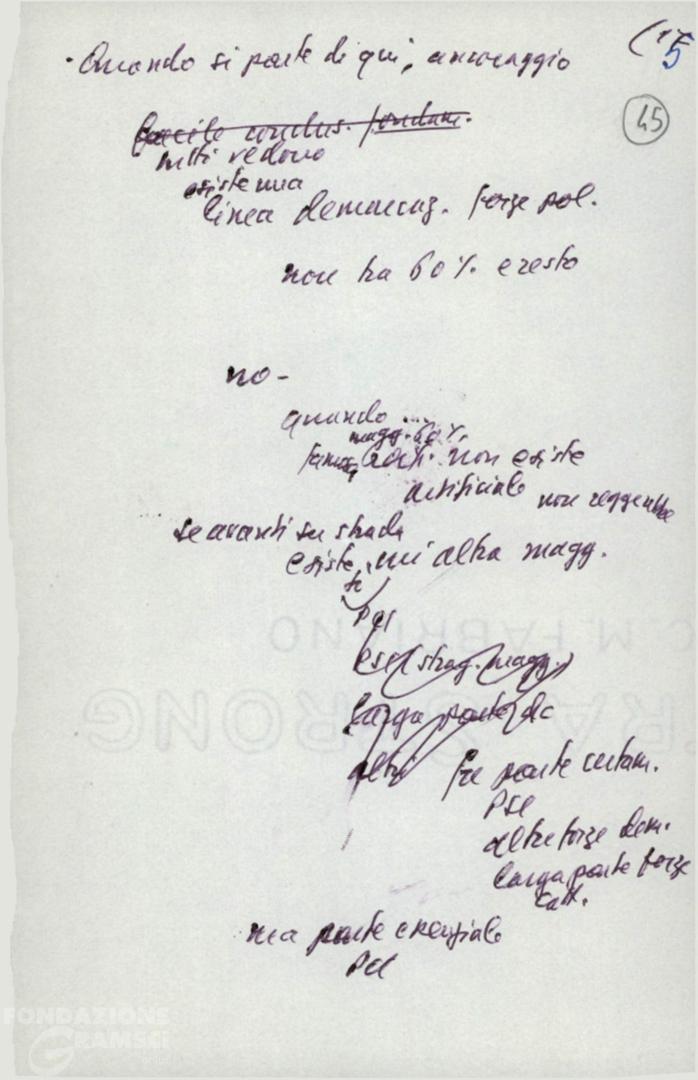 (15
45
· Quando si parte di qui, ancoraggio
facile conclus. fondam.
tutti vedono
esistenza
linea demarcaz. forze pol.
non tra 60% e resto
no -
quando ...
magg. 60%
non esiste
artificiale non reggerebbe
se avanti su strada
esiste, altra magg.
se
Psi
(strag. magg.)
larga parte dc
altri fa parte certam.
PSI
altre forze dem.
larga parte forze
catt.
ma parte essenziale
PCI
C.M. FABRIANO
FONDAZIONE
GRAMSCI